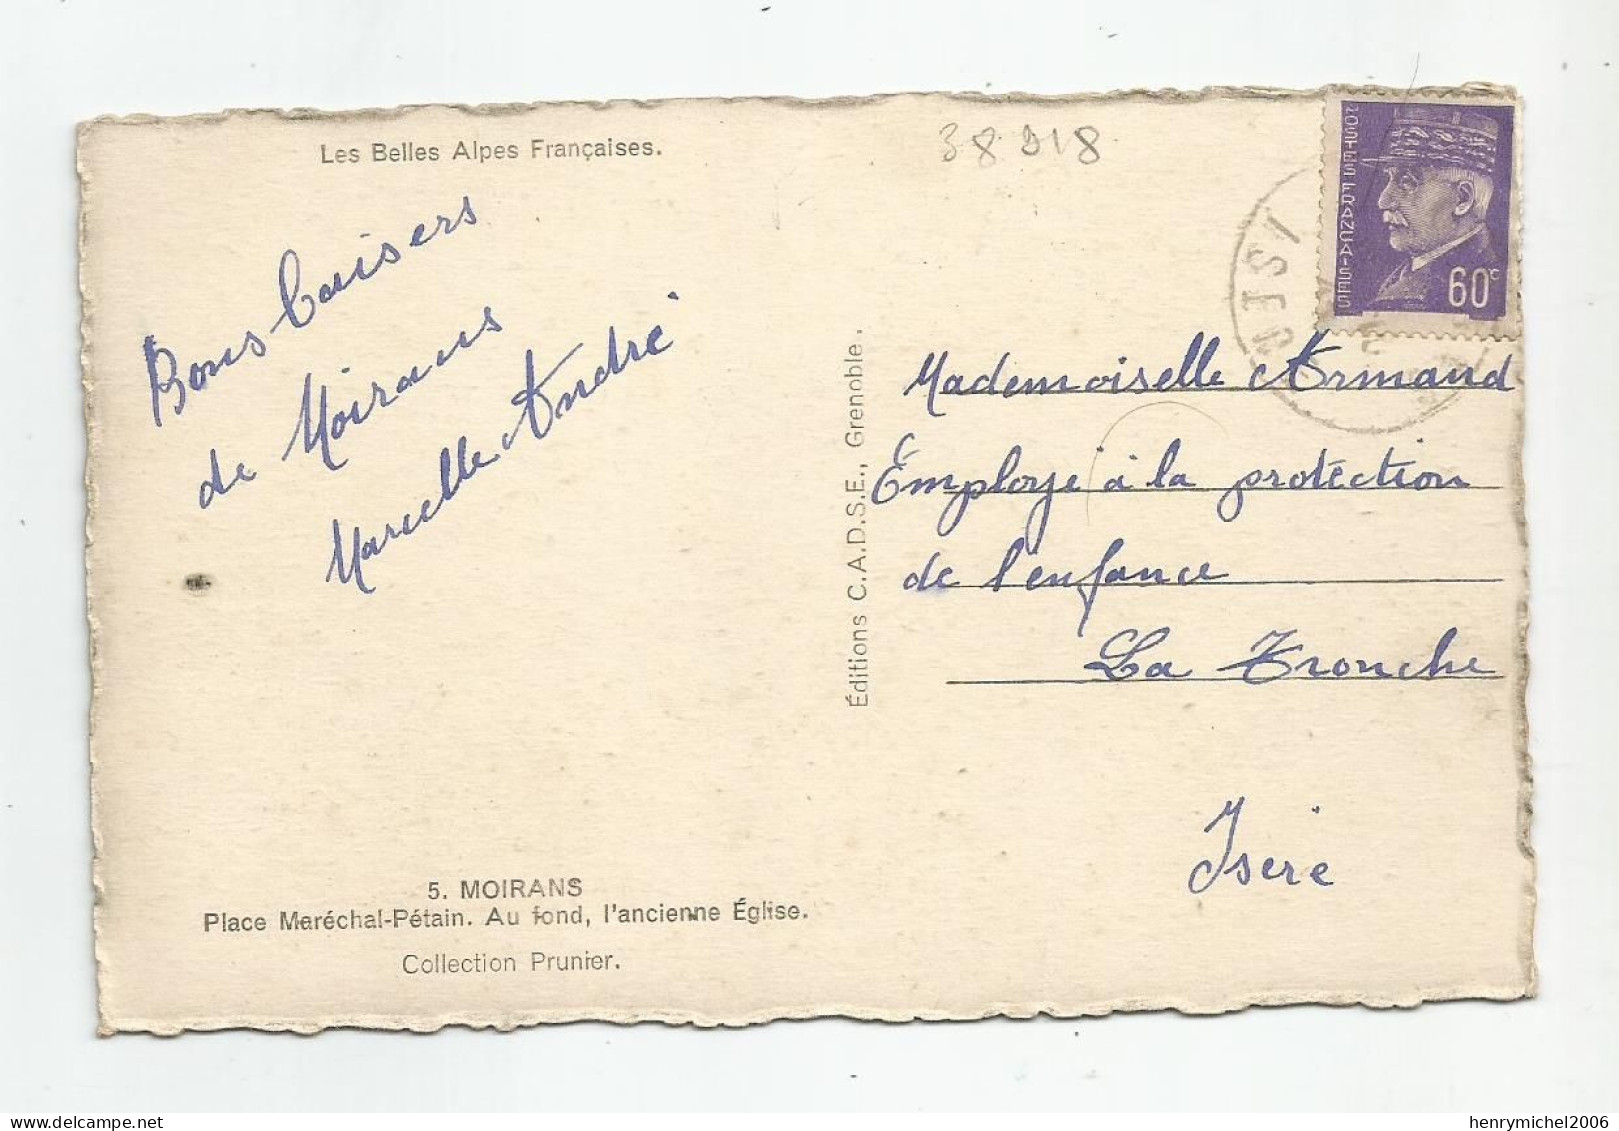 Les Belles Alpes Françaises.
38 918
POSTES FRANÇAISES
60c
ISER
Bons baisers
de Moirans
Marcelle André
Éditions C.A.D.S.E., Grenoble.
Mademoiselle Armand
Employé à la protection
de l'enfance
La Tronche
Isère
5. MOIRANS
Place Maréchal-Pétain. Au fond, l'ancienne Église.
Collection Prunier.
henrymichel2006